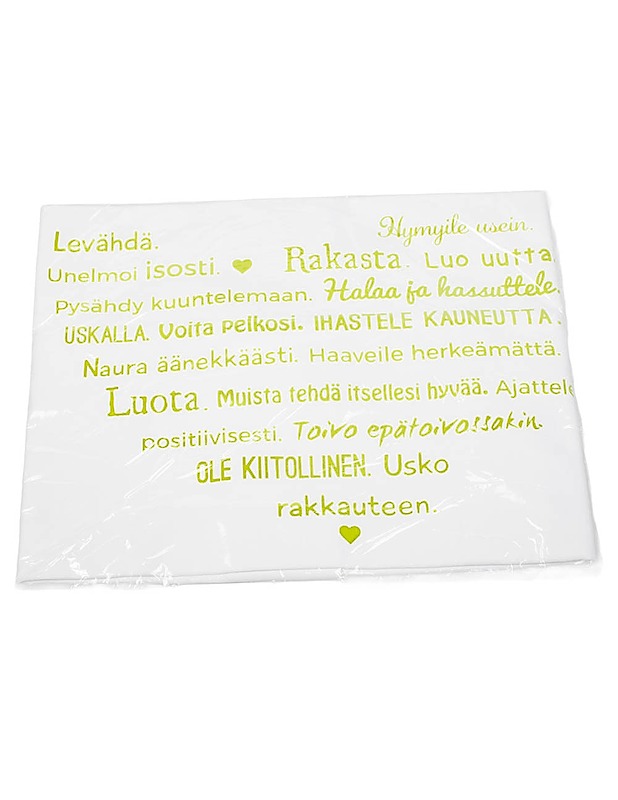 Levähdä. Hymyile usein.
Unelmoi isosti. Rakasta. Luo uutta.
Pysähdy kuuntelemaan. Halaa ja hassuttele.
USKALLA. Voita pelkosi. IHASTELE KAUNEUTTA.
Naura äänekkäästi. Haaveile herkeämättä.
Luota. Muista tehdä itsellesi hyvää. Ajattele
positiivisesti. Toivo epätoivossakin.
OLE KIITOLLINEN. Usko
rakkauteen.